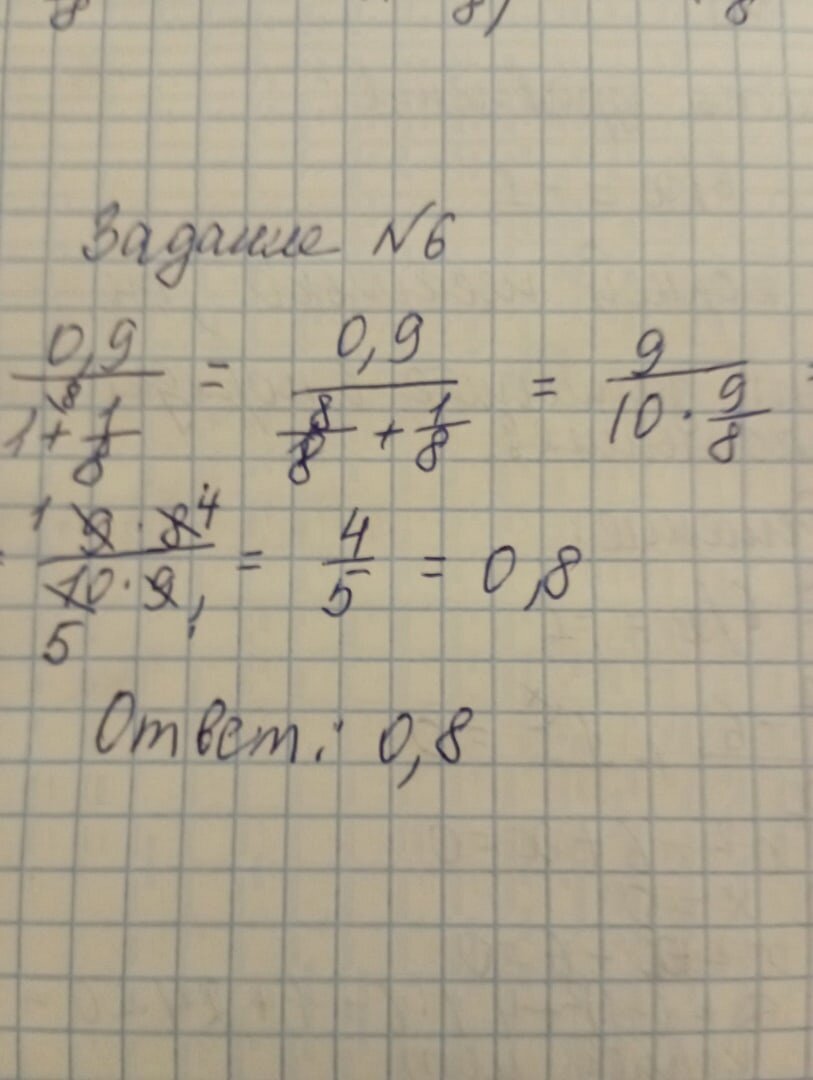 8 8) 8
Задание №6
0,9 / (1 + 1/8) = 0,9 / (8/8 + 1/8) = 9 / (10 · 9/8) =
= (9 · 8) / (10 · 9) = 4/5 = 0,8
Ответ: 0,8